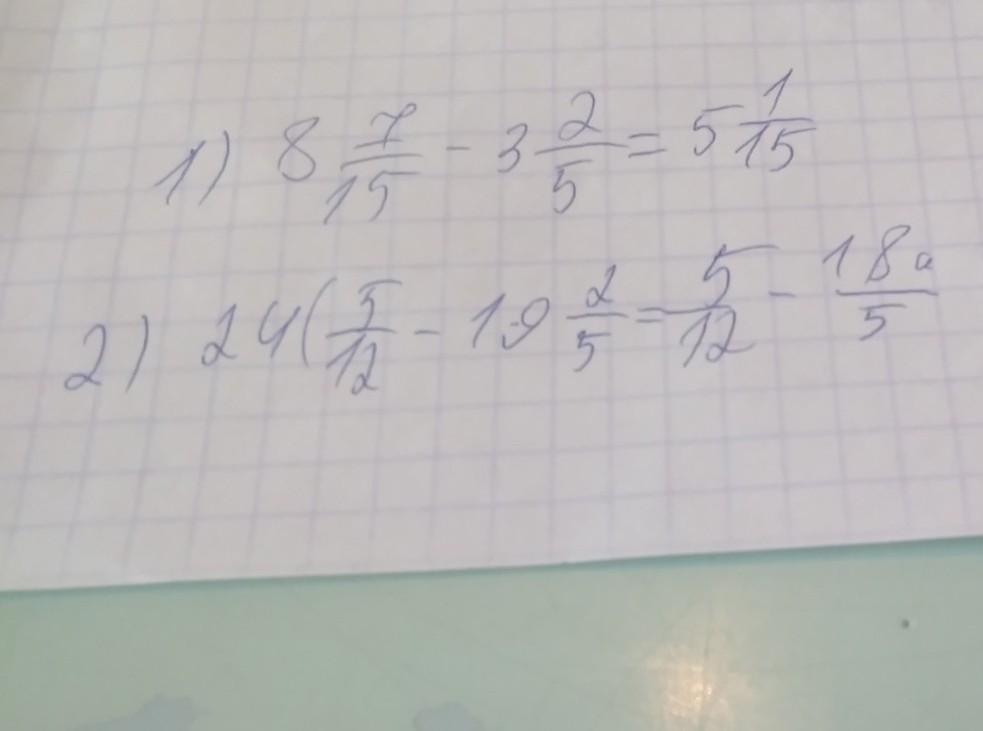 1) 8 7/15 - 3 2/5 = 5 1/15
2) 24(5/12 - 19 2/5 = 5/12 - 18a/5